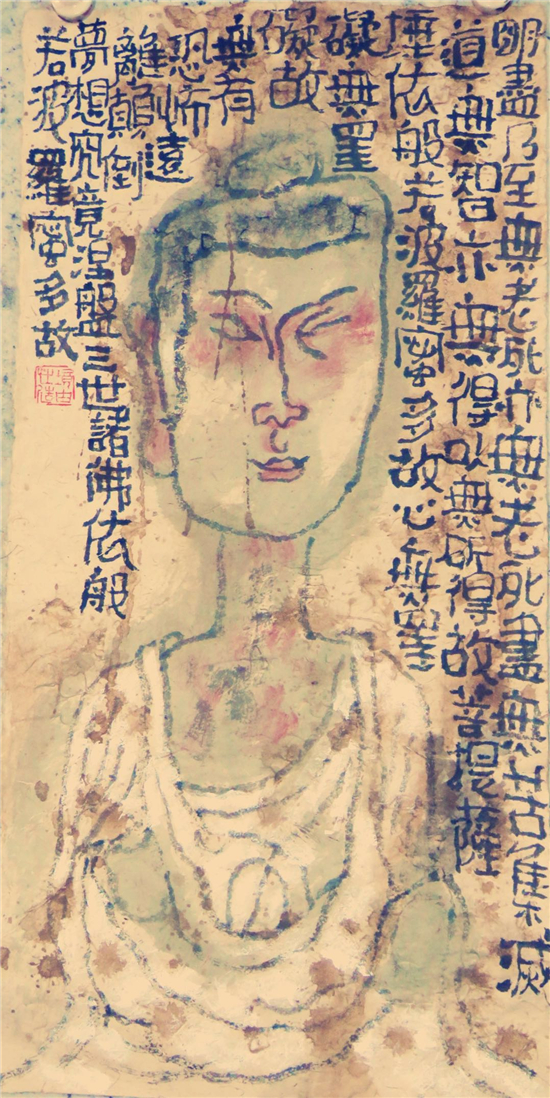 明盡乃至無老死亦無老死盡無苦集滅
道無智亦無得以無所得故菩提薩
埵依般若波羅蜜多故心無罣
礙無罣
礙故
無有
恐怖遠
離顛倒
夢想究竟涅盤三世諸佛依般
若波羅蜜多故